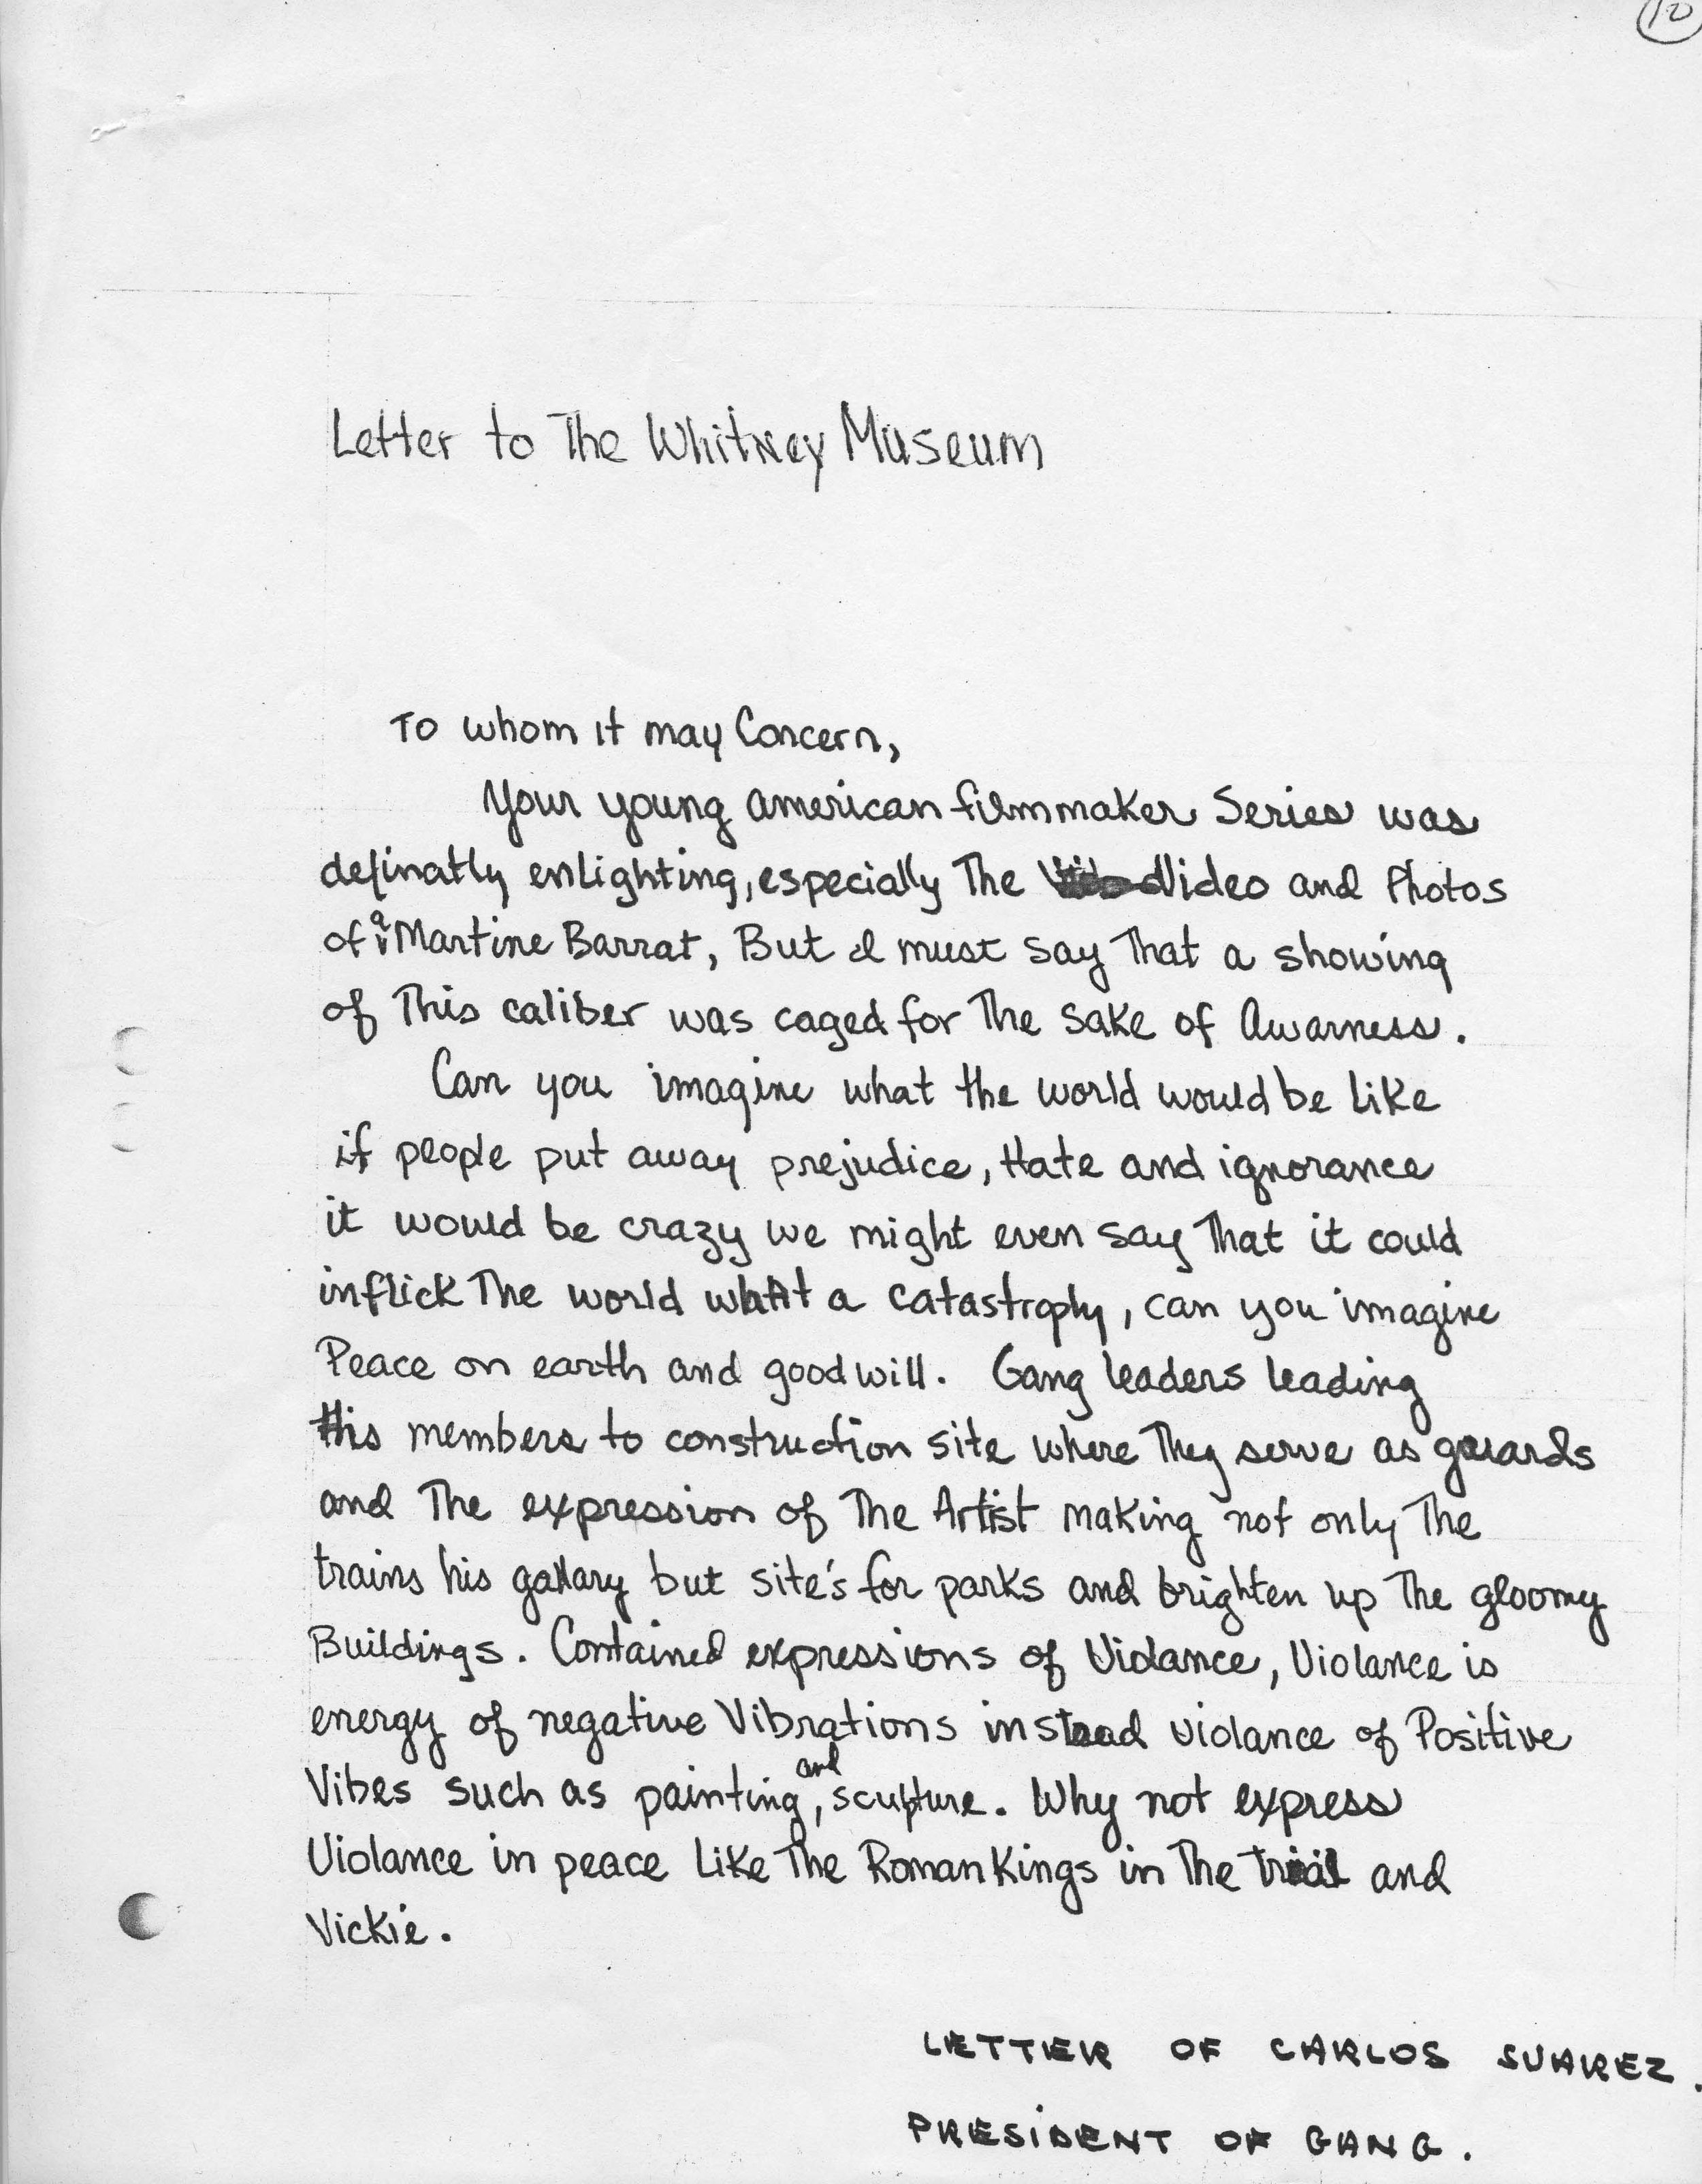 10
Letter to The Whitney Museum
To whom it may Concern,
Your young american filmmaker Series was
definatly enlighting, especially The Video and Photos
of Martine Barrat, But I must say That a showing
of This caliber was caged for The sake of Awarness.
Can you imagine what the world would be like
if people put away prejudice, Hate and ignorance
it would be crazy we might even say That it could
inflick The world what a catastrophy, can you imagine
Peace on earth and good will. Gang leaders leading
His members to construction site where They serve as guards
and The expression of The Artist making not only The
trains his gallary but site's for parks and brighten up The gloomy
Buildings. Contained expressions of Violance, Violance is
energy of negative Vibrations instead violance of Positive
Vibes such as painting, and sculpture. Why not express
Violance in peace Like The Roman Kings in The trial and
Vickie.
LETTER OF CARLOS SUAREZ.
PRESIDENT OF GANG.